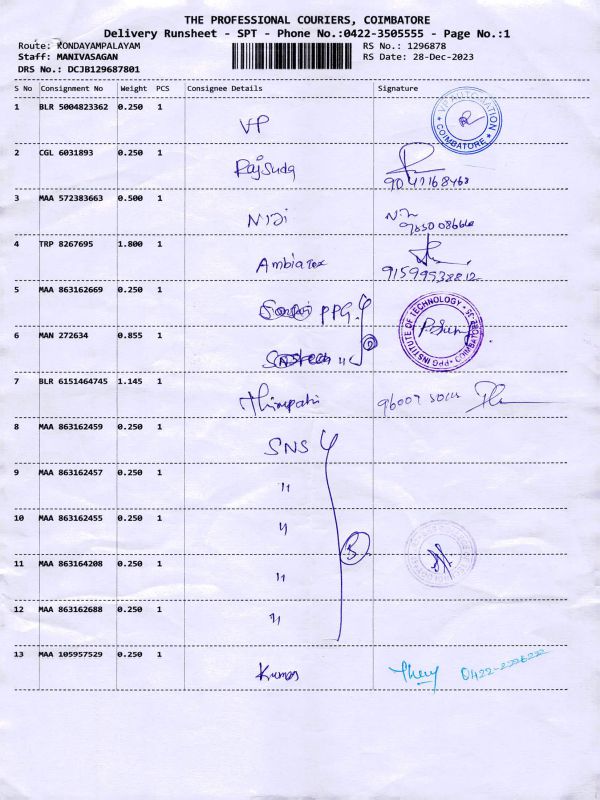 THE PROFESSIONAL COURIERS, COIMBATORE
Delivery Runsheet - SPT - Phone No.:0422-3505555 - Page No.:1
Route: KONDAYAMPALAYAM RS No.: 1296878
Staff: MANIVASAGAN RS Date: 28-Dec-2023
DRS No.: DCJB129687801
S No Consignment No Weight PCS Consignee Details Signature
1 BLR 5004823362 0.250 1 VP VP AUTOMATION COIMBATORE
2 CGL 6031893 0.250 1 RajSuda 9047168468
3 MAA 572383663 0.500 1
4 TRP 8267695 1.800 1 Ambiatex 91599538812
5 MAA 863162669 0.250 1 PPG PPG INSTITUTE OF TECHNOLOGY
6 MAN 272634 0.855 1 11
7 BLR 6151464745 1.145 1
8 MAA 863162459 0.250 1 SNS
9 MAA 863162457 0.250 1 11
10 MAA 863162455 0.250 1 11
11 MAA 863164208 0.250 1 11
12 MAA 863162688 0.250 1 11
13 MAA 105957529 0.250 1 Kumar